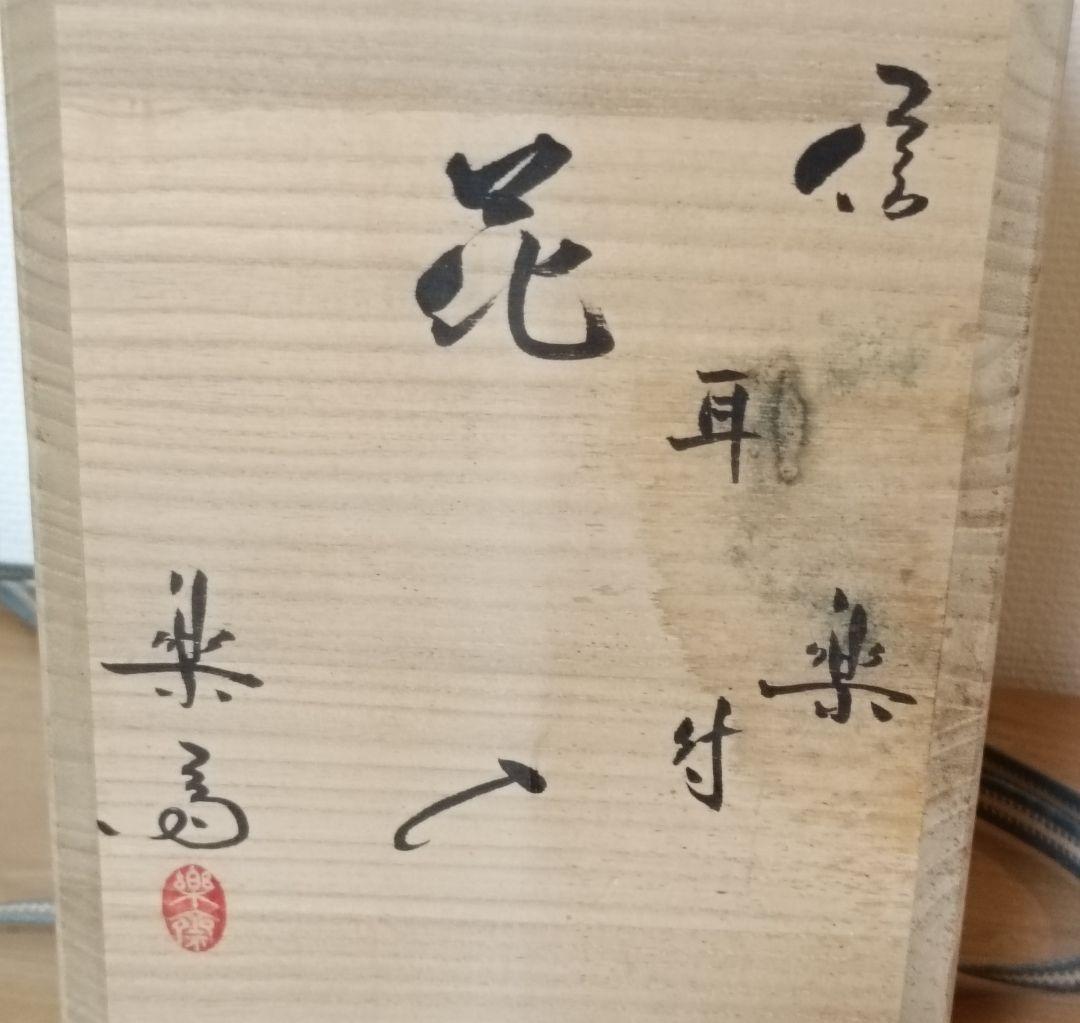 信楽
耳付
花入
楽斎
樂齋